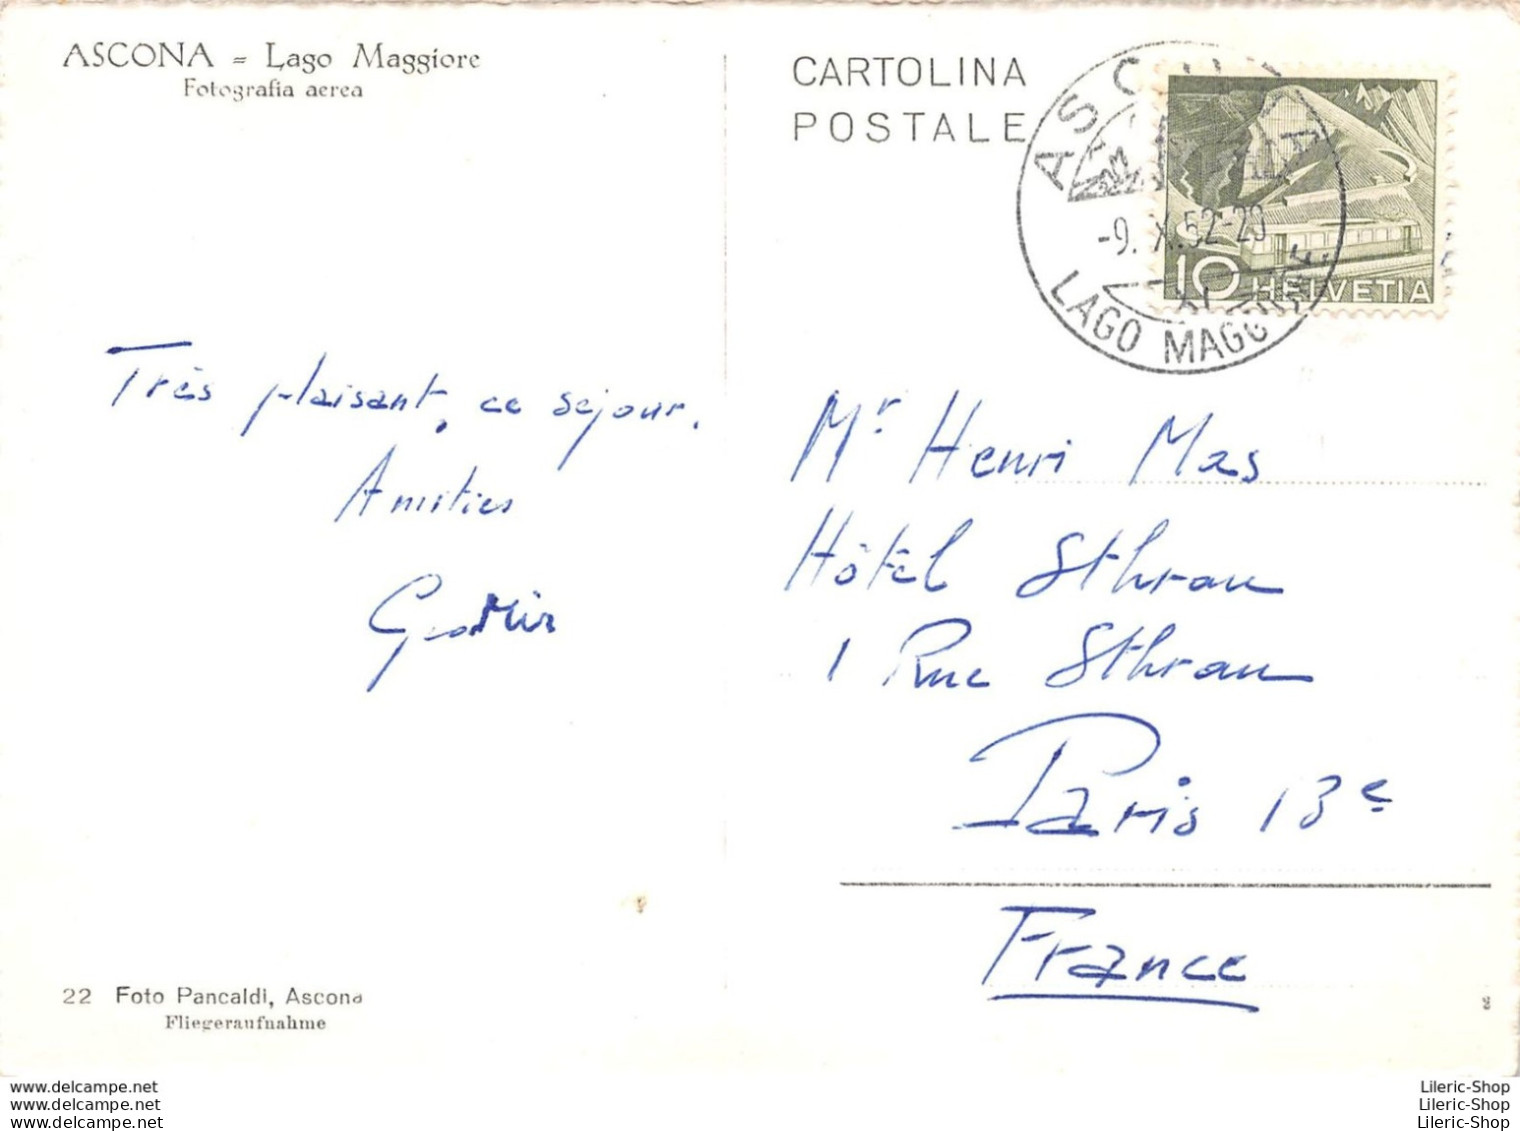 ASCONA = Lago Maggiore
Fotografia aerea
CARTOLINA
POSTALE
ASCONA
-9. X. 52-20
LAGO MAGGIORE
10 HELVETIA
Très plaisant, ce séjour.
Amitiés
Mr Henri Mas
Hôtel Sthrau
1 Rue Sthrau
Paris 13e
France
22 Foto Pancaldi, Ascona
Fliegeraufnahme
www.delcampe.net
www.delcampe.net
www.delcampe.net
Lileric-Shop
Lileric-Shop
Lileric-Shop